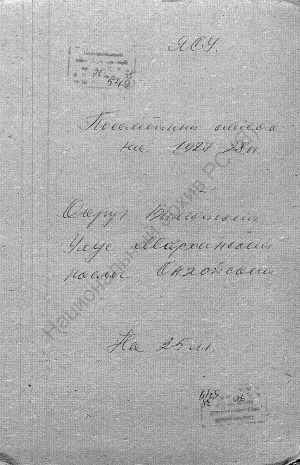 ЯОУ.
70 35
549
Посемейный список
на 1927/28 г.
Округ Вилюйский
Улус Мархинский
наслег Онхойский
На 25 л.
Национальный архив РС(Я)